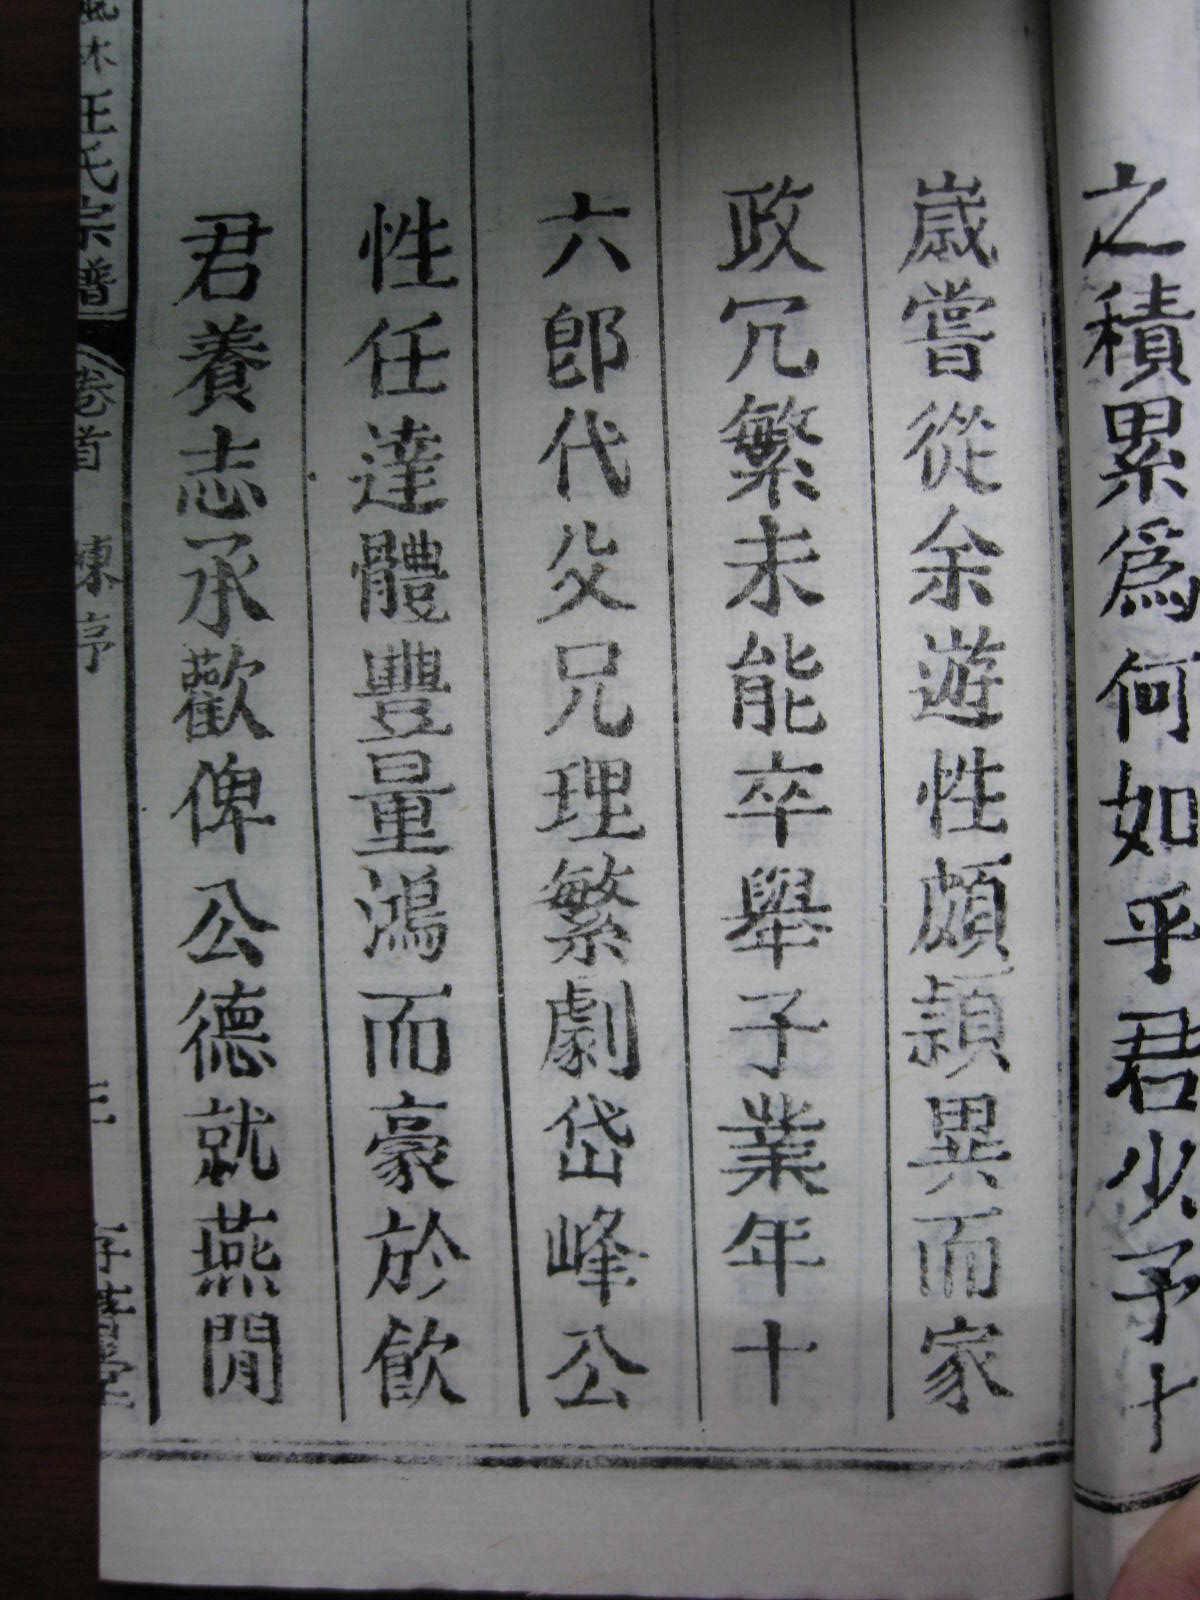 之積累爲何如乎君少予十
歲嘗從余遊性頗穎異而家
政冗繁未能卒舉子業年十
六卽代父兄理繁劇岱峰公
性任達體豐量鴻而豪於飲
君養志承歡俾公德就燕閒
林王氏宗譜 卷首 陳序